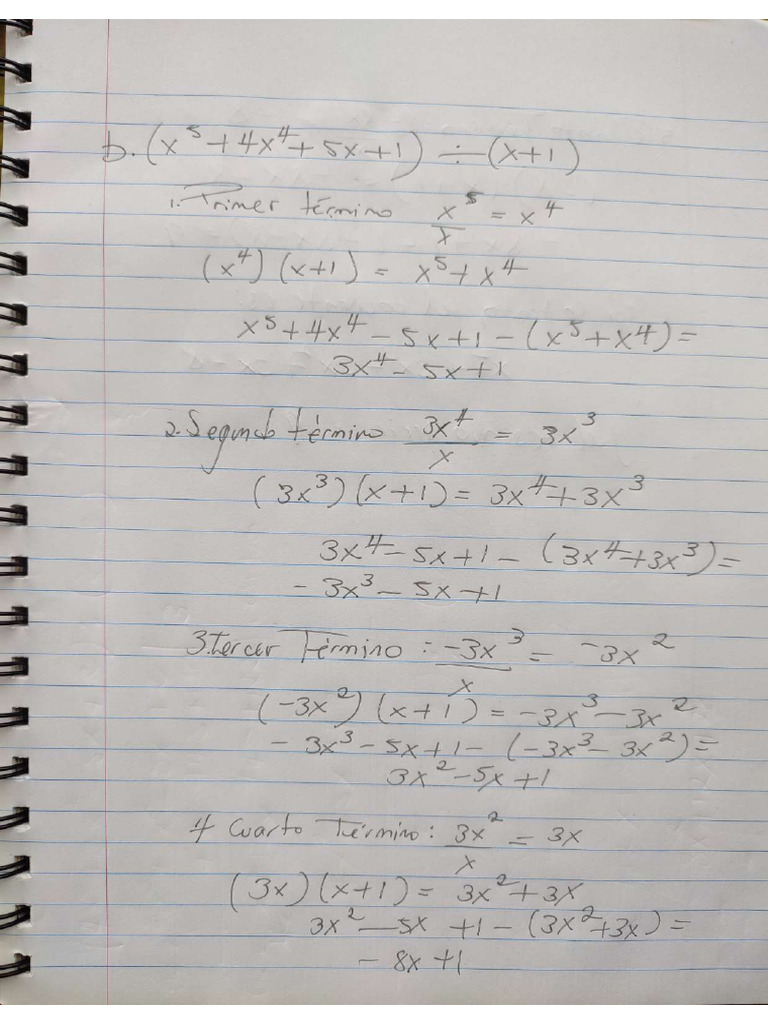 b. (x⁵+4x⁴+5x+1) ÷ (x+1)
1. Primer término x⁵/x = x⁴
(x⁴) (x+1) = x⁵+x⁴
x⁵+4x⁴-5x+1-(x⁵+x⁴)=
3x⁴-5x+1
2. Segundo término 3x⁴/x = 3x³
(3x³)(x+1) = 3x⁴+3x³
3x⁴-5x+1-(3x⁴+3x³)=
-3x³-5x+1
3. tercer Término: -3x³/x = -3x²
(-3x²)(x+1) = -3x³-3x²
-3x³-5x+1-(-3x³-3x²)=
3x²-5x+1
4 Cuarto Término: 3x²/x = 3x
(3x)(x+1) = 3x²+3x
3x²-5x+1-(3x²+3x)=
-8x+1